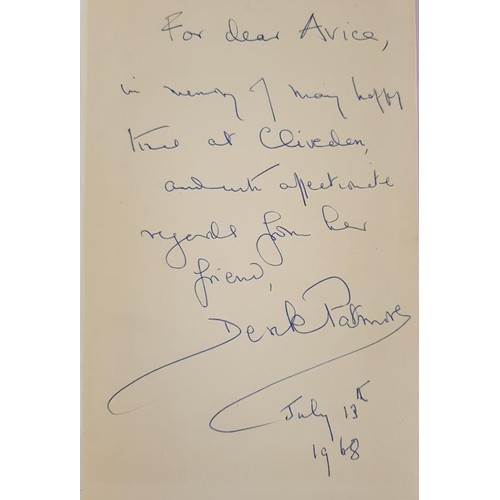 For dear Avice,
in memory of many happy
time at Cliveden,
and with affectionate
regards from her
friend,
Derek Patmore
July 13th
1968